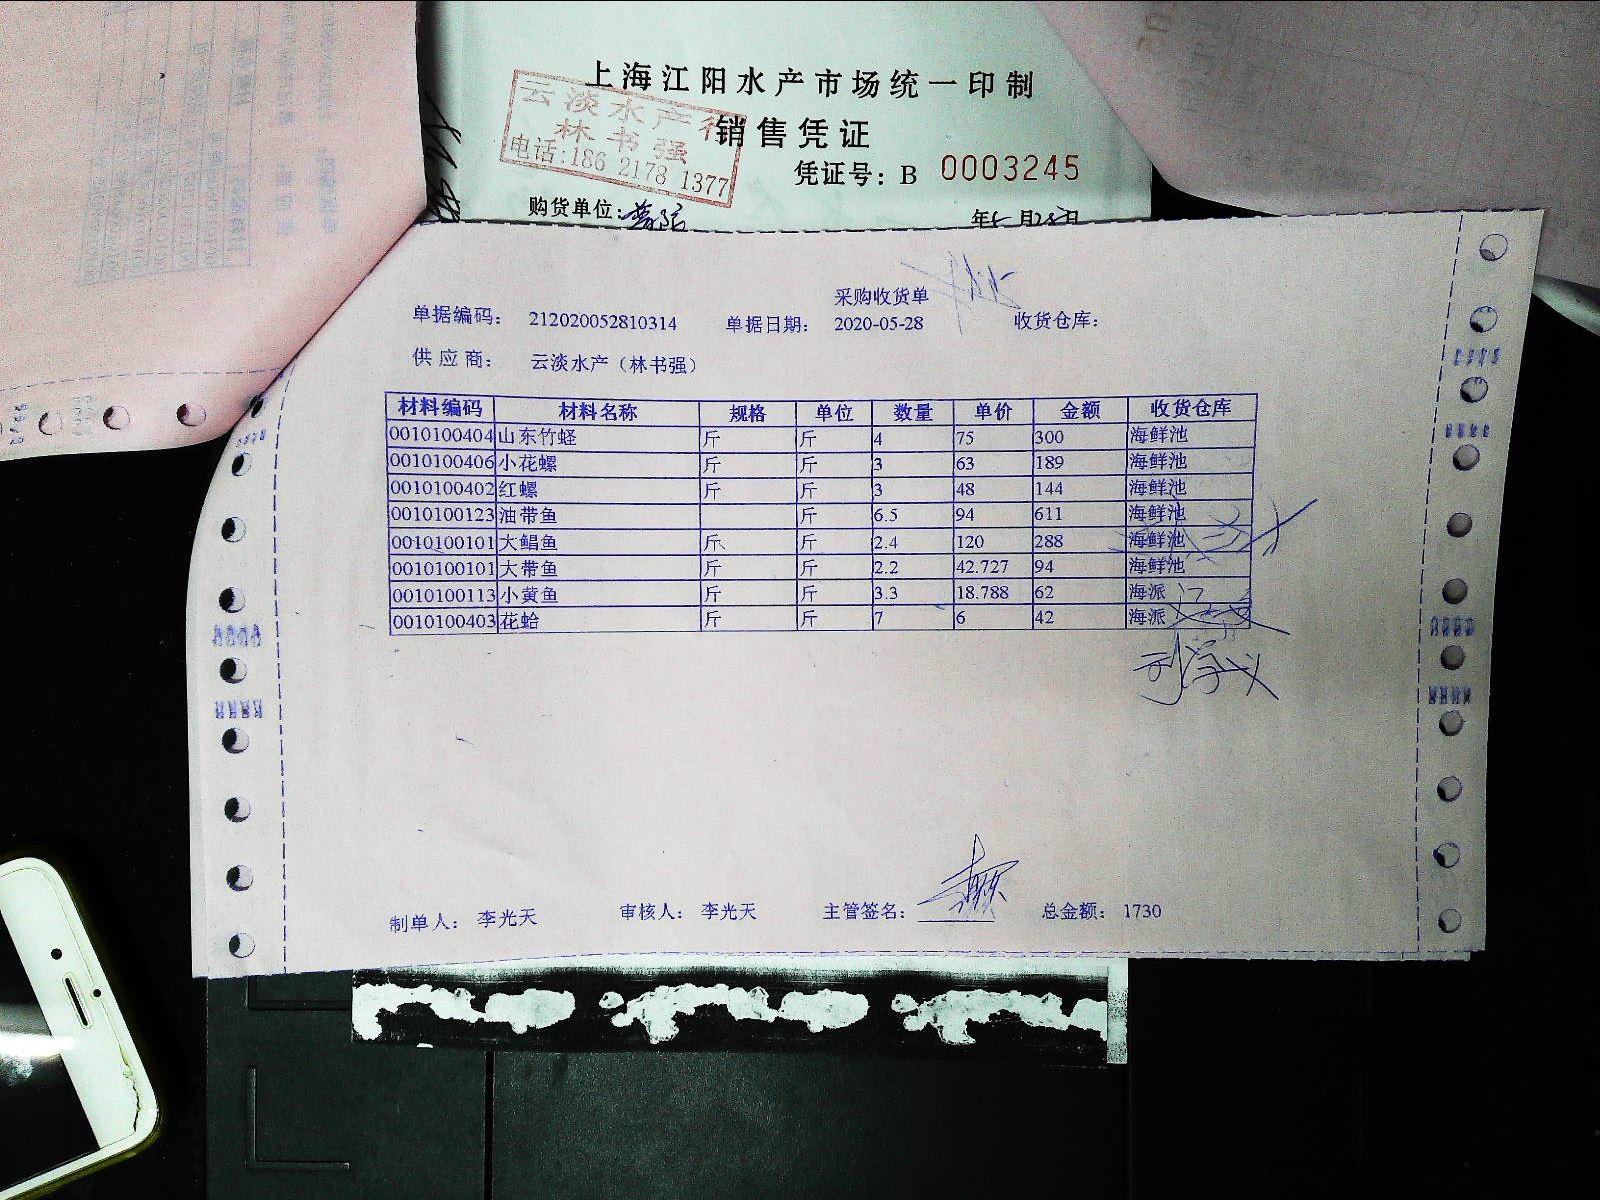 上海江阳水产市场统一印制
销售凭证
云淡水产行
林书强
电话:186 2178 1377
凭证号：B 0003245
购货单位:
年 月 日
采购收货单
单据编码： 212020052810314 单据日期： 2020-05-28 收货仓库：
供应商： 云淡水产（林书强）
材料编码 材料名称 规格 单位 数量 单价 金额 收货仓库
0010100404 山东竹蛏 斤 斤 4 75 300 海鲜池
0010100406 小花螺 斤 斤 3 63 189 海鲜池
0010100402 红螺 斤 斤 3 48 144 海鲜池
0010100123 油带鱼 斤 6.5 94 611 海鲜池
0010100101 大鲳鱼 斤 斤 2.4 120 288 海鲜池
0010100101 大带鱼 斤 斤 2.2 42.727 94 海鲜池
0010100113 小黄鱼 斤 斤 3.3 18.788 62 海派
0010100403 花蛤 斤 斤 7 6 42 海派
制单人： 李光天 审核人： 李光天 主管签名： 总金额： 1730